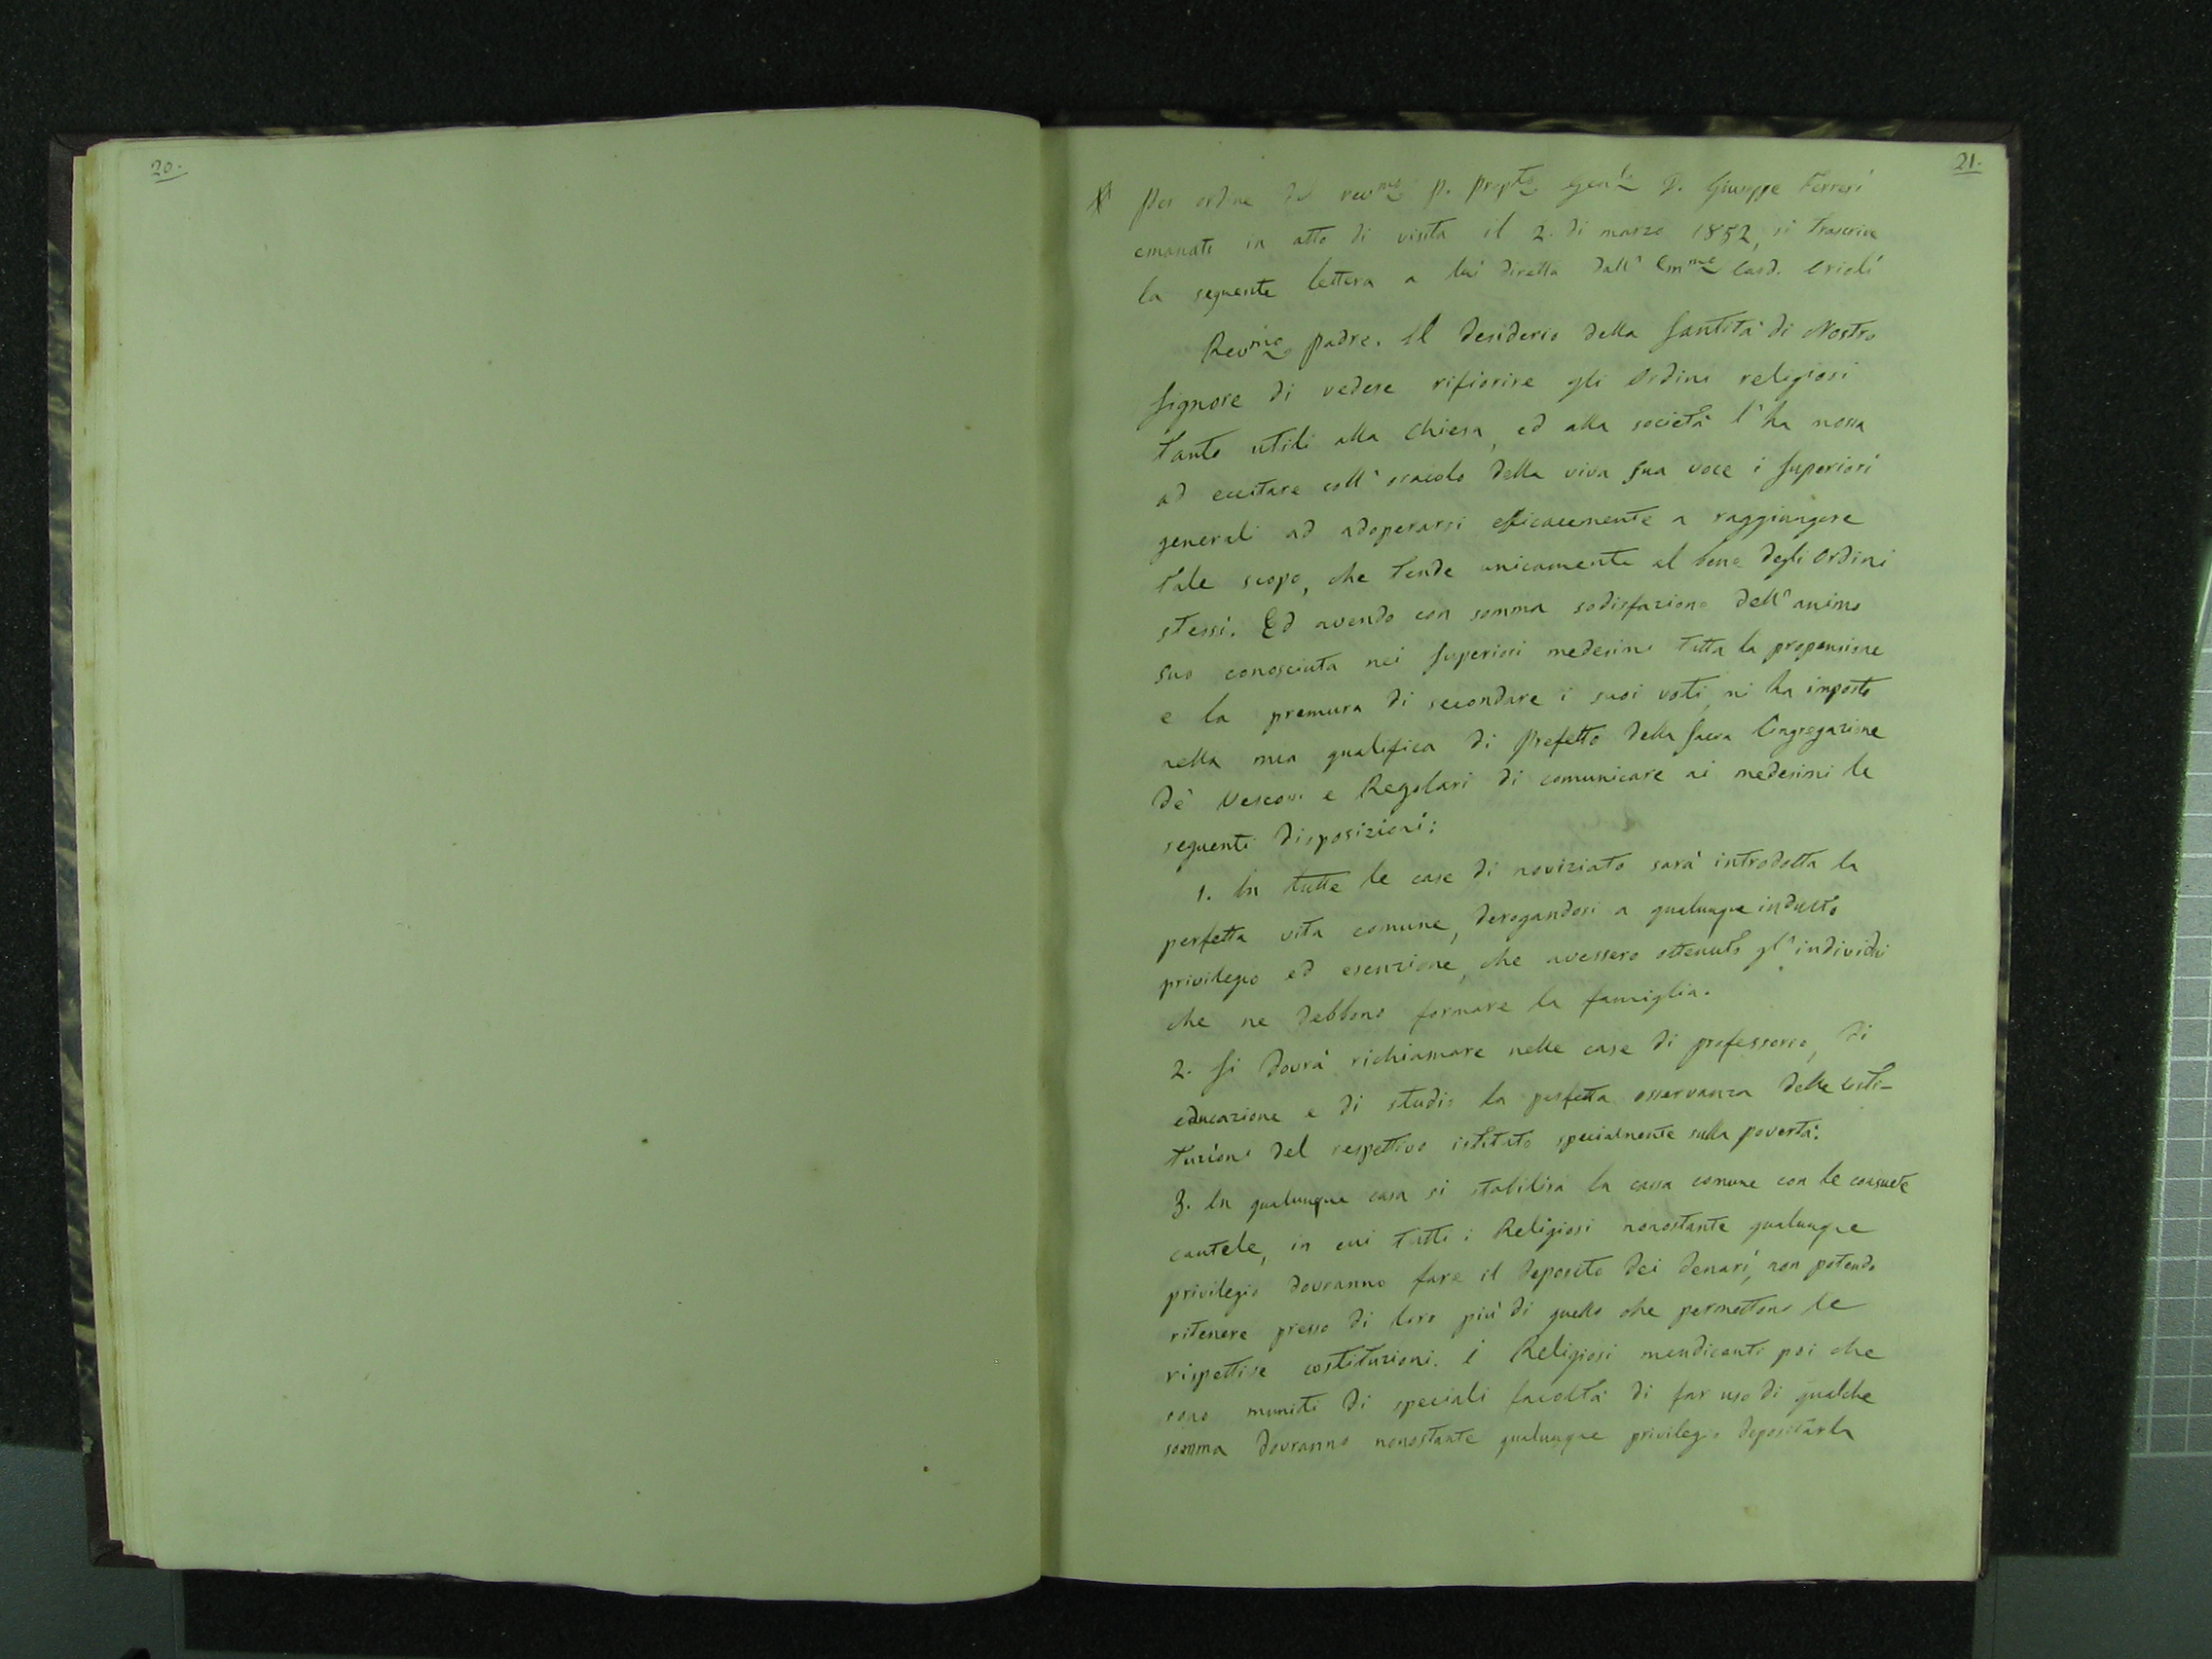 20.
21.
Per ordine del rev.mo P. Prep.to Gen.le D. Giuseppe Ferreri
emanato in atto di visita il 2. di marzo 1852, si trascrive
la seguente lettera a lui diretta dall' Em.mo Card. Orioli
Rev.mo Padre. Il desiderio della Santità di Nostro
Signore di vedere rifiorire gli Ordini religiosi
tanto utili alla Chiesa, ed alla società l'ha mossa
ad eccitare coll'oracolo della viva Sua voce i Superiori
generali ad adoperarsi efficacemente a raggiungere
tale scopo, che tende unicamente al bene degli Ordini
stessi. Ed avendo con somma sodisfazione dell'animo
Suo conosciuta nei Superiori medesimi tutta la propensione
e la premura di secondare i suoi voti, mi ha imposto
nella mia qualifica di Prefetto della Sacra Congregazione
de' Vescovi e Regolari di comunicare ai medesimi le
seguenti disposizioni:
1. In tutte le case di noviziato sarà introdotta la
perfetta vita comune, derogandosi a qualunque indulto
privilegio ed esenzione, che avessero ottenuto gl'individui
che ne debbono formare la famiglia.
2. Si dovrà richiamare nelle case di professorio, di
educazione e di studio la perfetta osservanza delle costi-
tuzioni del respettivo istituto specialmente sulla povertà.
3. In qualunque casa si stabilirà la cassa comune con le consuete
cautele, in cui tutti i Religiosi nonostante qualunque
privilegio dovranno fare il deposito dei denari, non potendo
ritenere presso di loro più di quello che permettono le
rispettive costituzioni. I Religiosi mendicanti poi che
sono muniti di speciali facoltà di far uso di qualche
somma dovranno nonostante qualunque privilegio depositarla